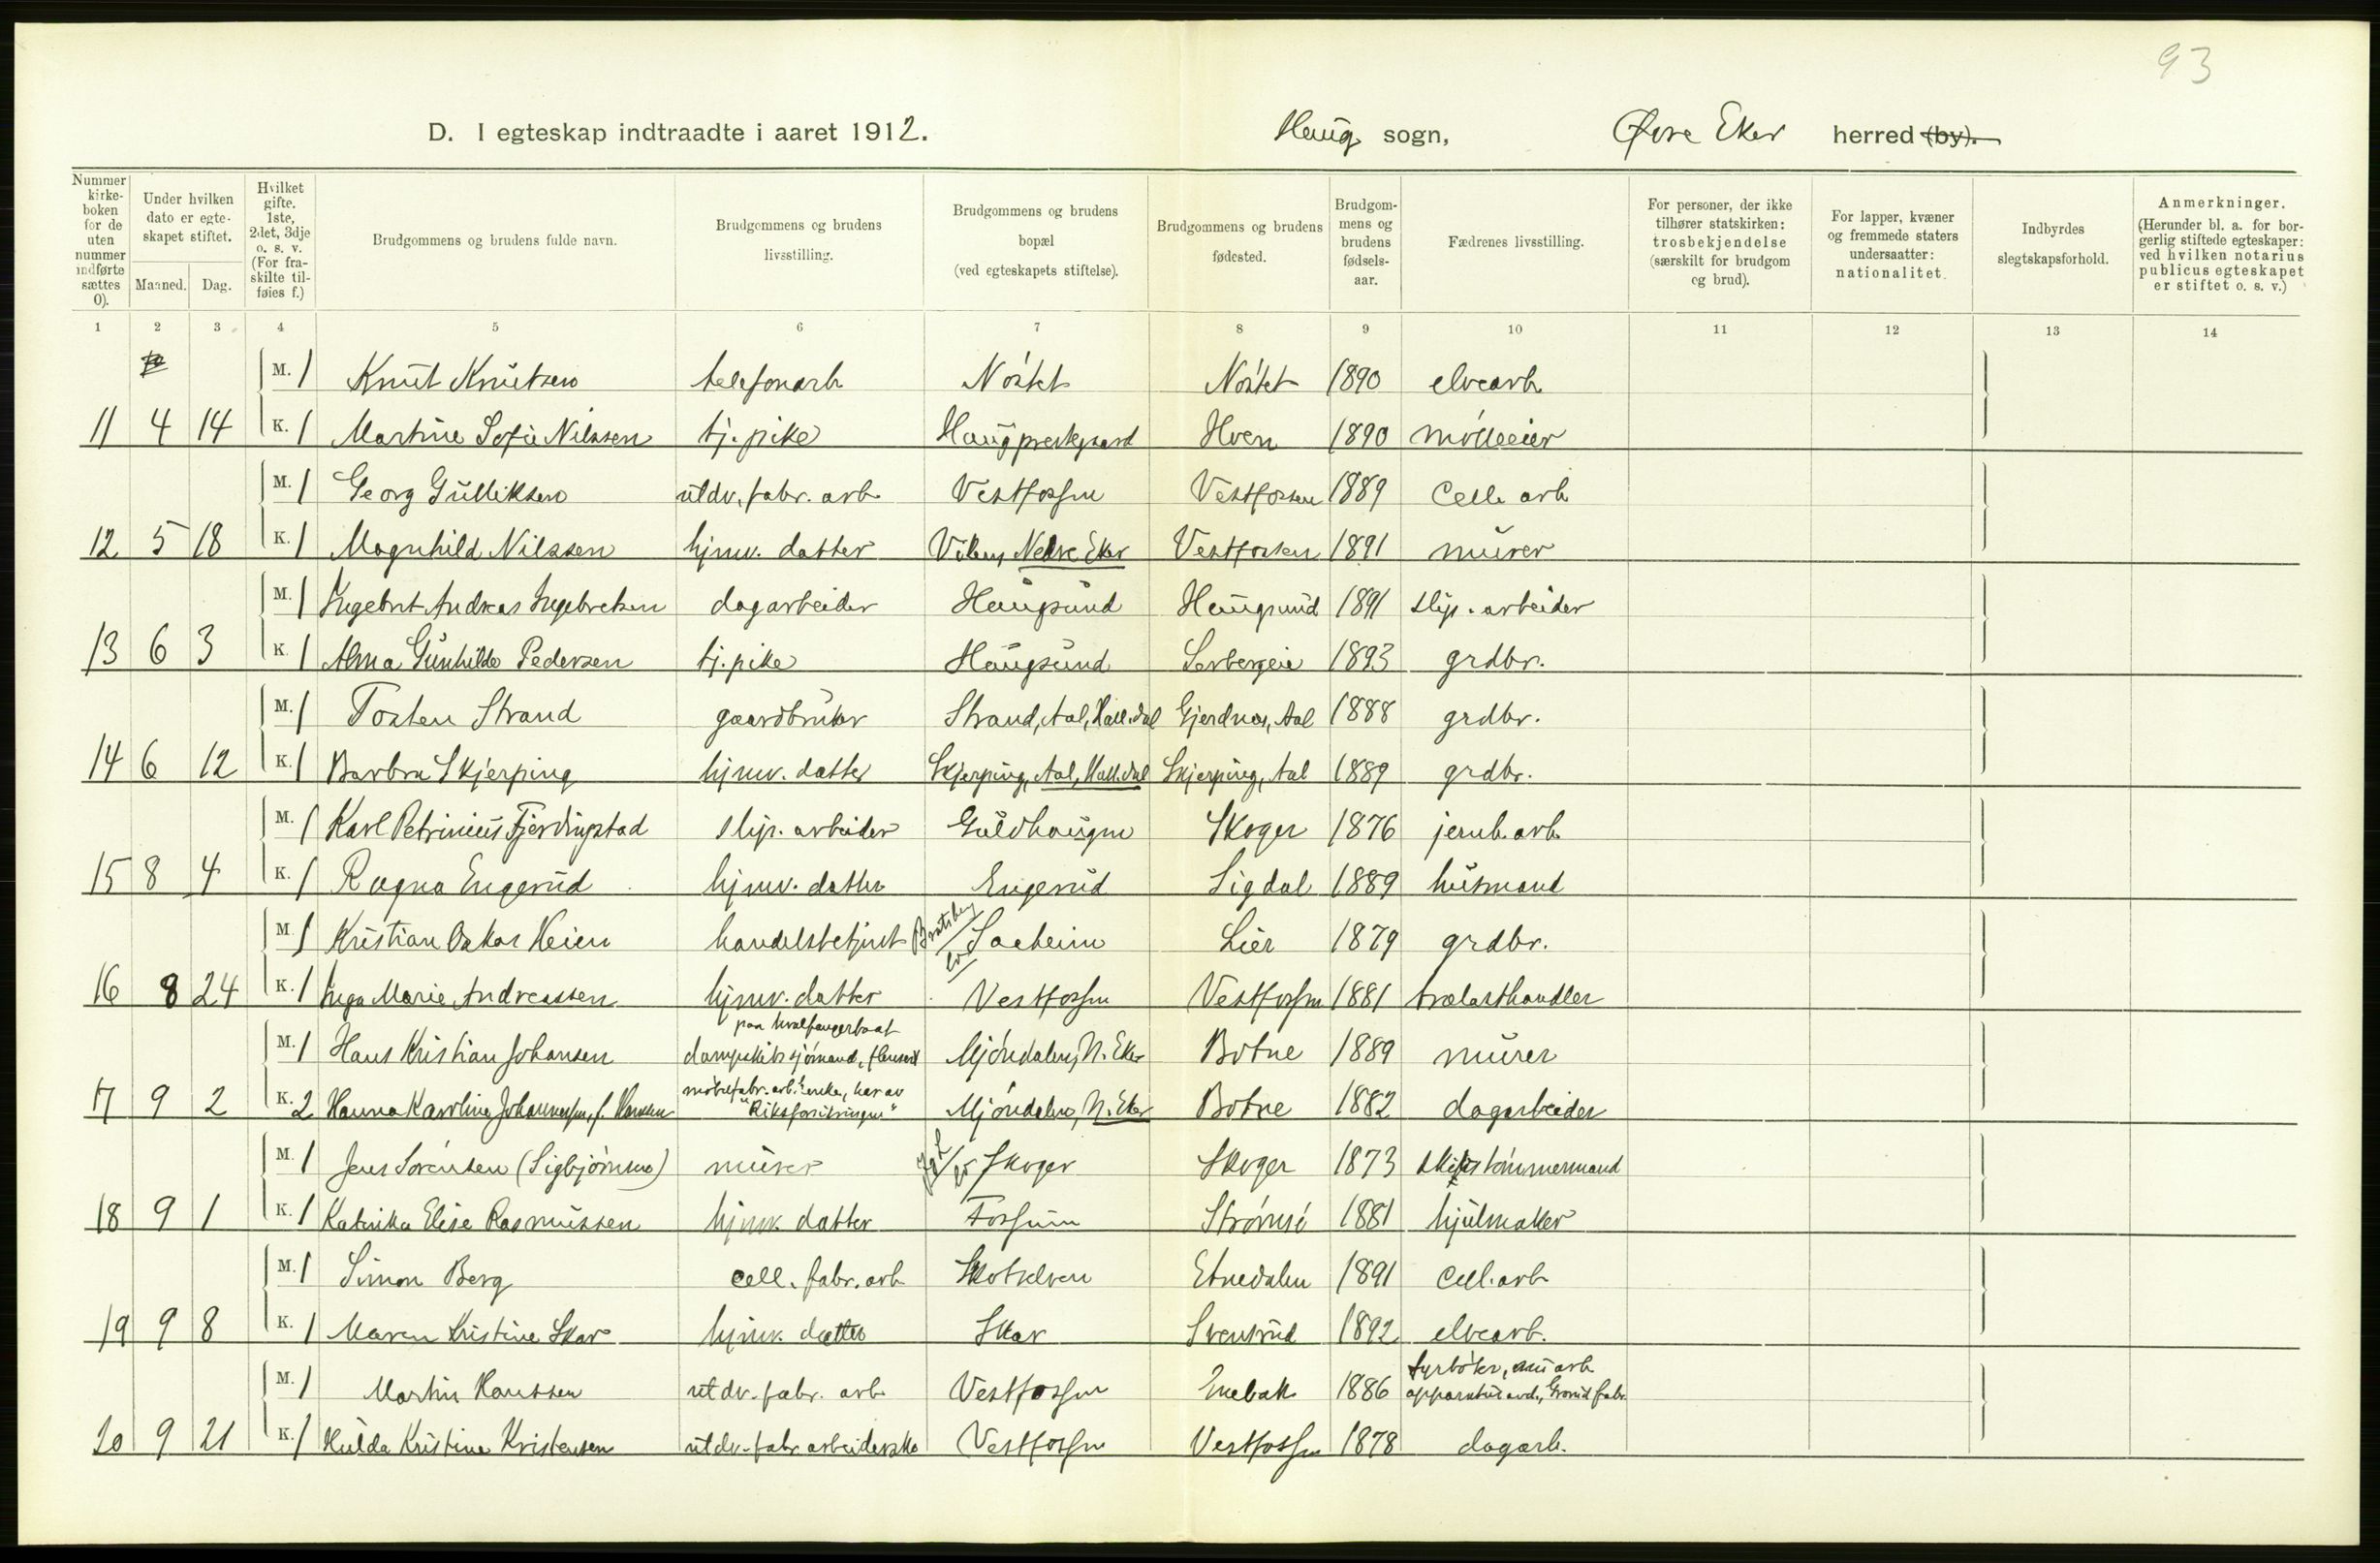 93
D. I egteskap indtraadte i aaret 1912. Haug sogn, Øvre Eker herred (by).
Nummer i kirkeboken for de uten nummer indførte sættes 0).
Under hvilken dato er egteskapet stiftet.
Maaned. Dag.
Hvilket gifte. 1ste, 2det, 3dje o. s. v. (For fraskilte tilføies f.)
Brudgommens og brudens fulde navn.
Brudgommens og brudens livsstilling.
Brudgommens og brudens bopæl (ved egteskapets stiftelse).
Brudgommens og brudens fødested.
Brudgommens og brudens fødselsaar.
Fædrenes livsstilling.
For personer, der ikke tilhører statskirken: trosbekjendelse (særskilt for brudgom og brud).
For lapper, kvæner og fremmede staters undersaatter: nationalitet.
Indbyrdes slegtskapsforhold.
Anmerkninger. (Herunder bl. a. for borgerlig stiftede egteskaper: ved hvilken notarius publicus egteskapet er stiftet o. s. v.)
1 2 3 4 5 6 7 8 9 10 11 12 13 14
M. 1 Knut Knutsen telefonarb Nöstet Nöstet 1890 elvearb
11 4 14 K. 1 Martine Sofie Nilssen tj. pike Haug prestgaard Hoen 1890 mölleeier
M. 1 Georg Gulliksen utdv. fabr. arb Vestfossen Vestfossen 1889 Cell. arb
12 5 18 K. 1 Magnhild Nilssen hjmv. datter Viken, Nedre Eker Vestfossen 1891 murer
M. 1 Ingebret Andreas Ingebretsen dagarbeider Haugsund Haugsund 1891 slip. arbeider
13 6 3 K. 1 Alma Gunhilde Pedersen tj. pike Haugsund 1893 grdbr.
M. 1 Tosten Strand gaardbruker Strand, Aal, Hall.dal Gjerdnes, Aal 1888 grdbr.
14 6 12 K. 1 Barbra Skjerping hjmv. datter Skjerping, Aal, Hall.dal Skjerping, Aal 1889 grdbr.
M. 1 Karl Petrinius Fjerdingstad slip. arbeider Guldhaugen Skoger 1876 jernb. arb
15 8 4 K. 1 Ragna Engerud hjmv. datter Engerud Sigdal 1889 husmand
M. 1 Kristian Oskar Heien handelsbetjent Bratsberg Saaheim Lier 1879 grdbr.
16 8 24 K. 1 Inga Marie Andreassen hjmv. datter Vestfossen Vestfossen 1881 trælasthandler
paa hvalfangerbaat
M. 1 Hans Kristian Johansen dampskibssjömand, Mjöndalen, N. Eker Botne 1889 murer
möbelfabr. arb. enke, har av
17 9 2 K. 2 Hanna Karoline Johannessen, f. Hansen "Riksforsikringen" Mjöndalen, N. Eker Botne 1882 dagarbeider
M. 1 Jens Sörensen (Sigbjörnsen) murer Skoger Skoger 1873 skibstömmermand
18 9 1 K. 1 Katinka Elise Rasmussen hjmv. datter Fossum Strömsö 1881 hjulmaker
M. 1 Simon Berg cell. fabr. arb Skotselven Etnedalen 1891 Cell. arb
19 9 8 K. 1 Maren Kristine Skar hjmv. datter Skar Svensrud 1892 elvearb.
fyrböter, nu arb
M. 1 Martin Hanssen utdv. fabr. arb Vestfossen Enebak 1886
20 9 21 K. 1 Hulda Kristine Kristensen utdv. fabr. arbeiderske Vestfossen Vestfossen 1878 dagarb.